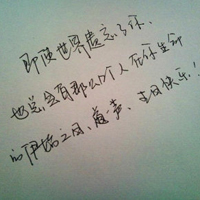 即使世界遗忘了你、
也总会有那么个人在你生命
的伊始之间、声、生日快乐！